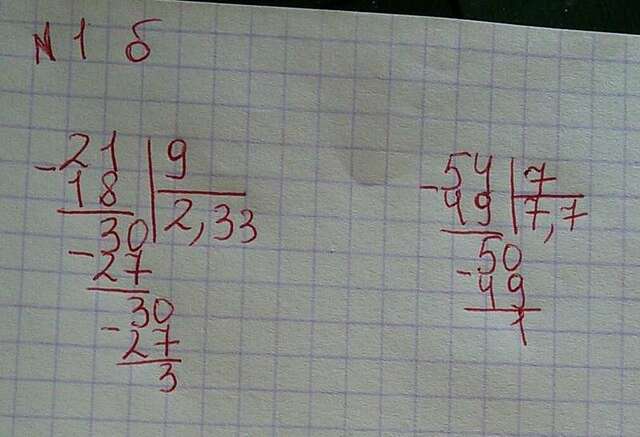 N 1 б
-21 | 9
18 | 2,33
30
-27
-30
27
3
-54 | 7
49 | 7,7
-50
49
1